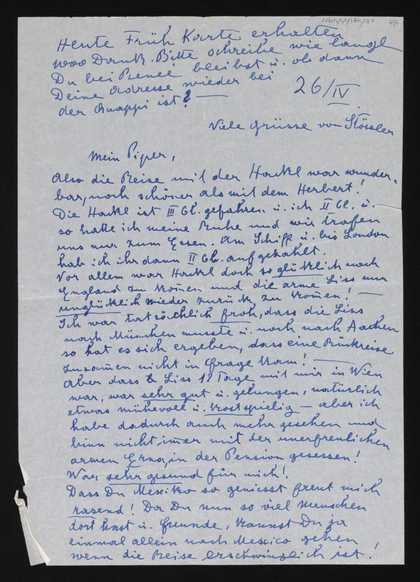 Heute Früh Karte erhalten
1000 Dank. Bitte schreibe wie lange
Du bei Renee bleibst u. ob dann
Deine Adresse wieder bei
der Quappi ist? —
26/IV.
Viele Grüsse von Stössler
Mein Piper,
Also die Reise mit der Hackl war wunder-
bar, noch schöner als mit dem Herbert!
Die Hackl ist III Cl. gefahren u. ich II Cl. u.
so hatte ich meine Ruhe und wir trafen
uns nur zum Essen. Am Schiff u. bis London
hab ich ihr dann II Cl. aufgezahlt.
Vor allem war Hackl doch so glücklich nach
England zu können und die arme Liss nur
unglücklich wieder zurück zu können! —
Ich war tatsächlich froh, dass die Liss
nach München musste u. noch nach Aachen
so hat es sich ergeben, dass eine Rückreise
zusammen nicht in Frage kam! —
Aber dass die Liss Tage mit mir in Wien
war, war sehr gut u. gelungen, natürlich
etwas mühevoll u. kostspielig — aber ich
habe dadurch auch mehr gesehen und
binn nicht immer mit der unerfreulichen
armen Erna, in der Pension gesessen!
War sehr gesund für mich!
Dass Du Mexiko so geniesst freut mich
rasend! Da Du nun so viel Menschen
dort hast u. Freunde, kannst Du ja
einmal allein nach Mexico gehen
wenn die Reise erschwinglich ist!